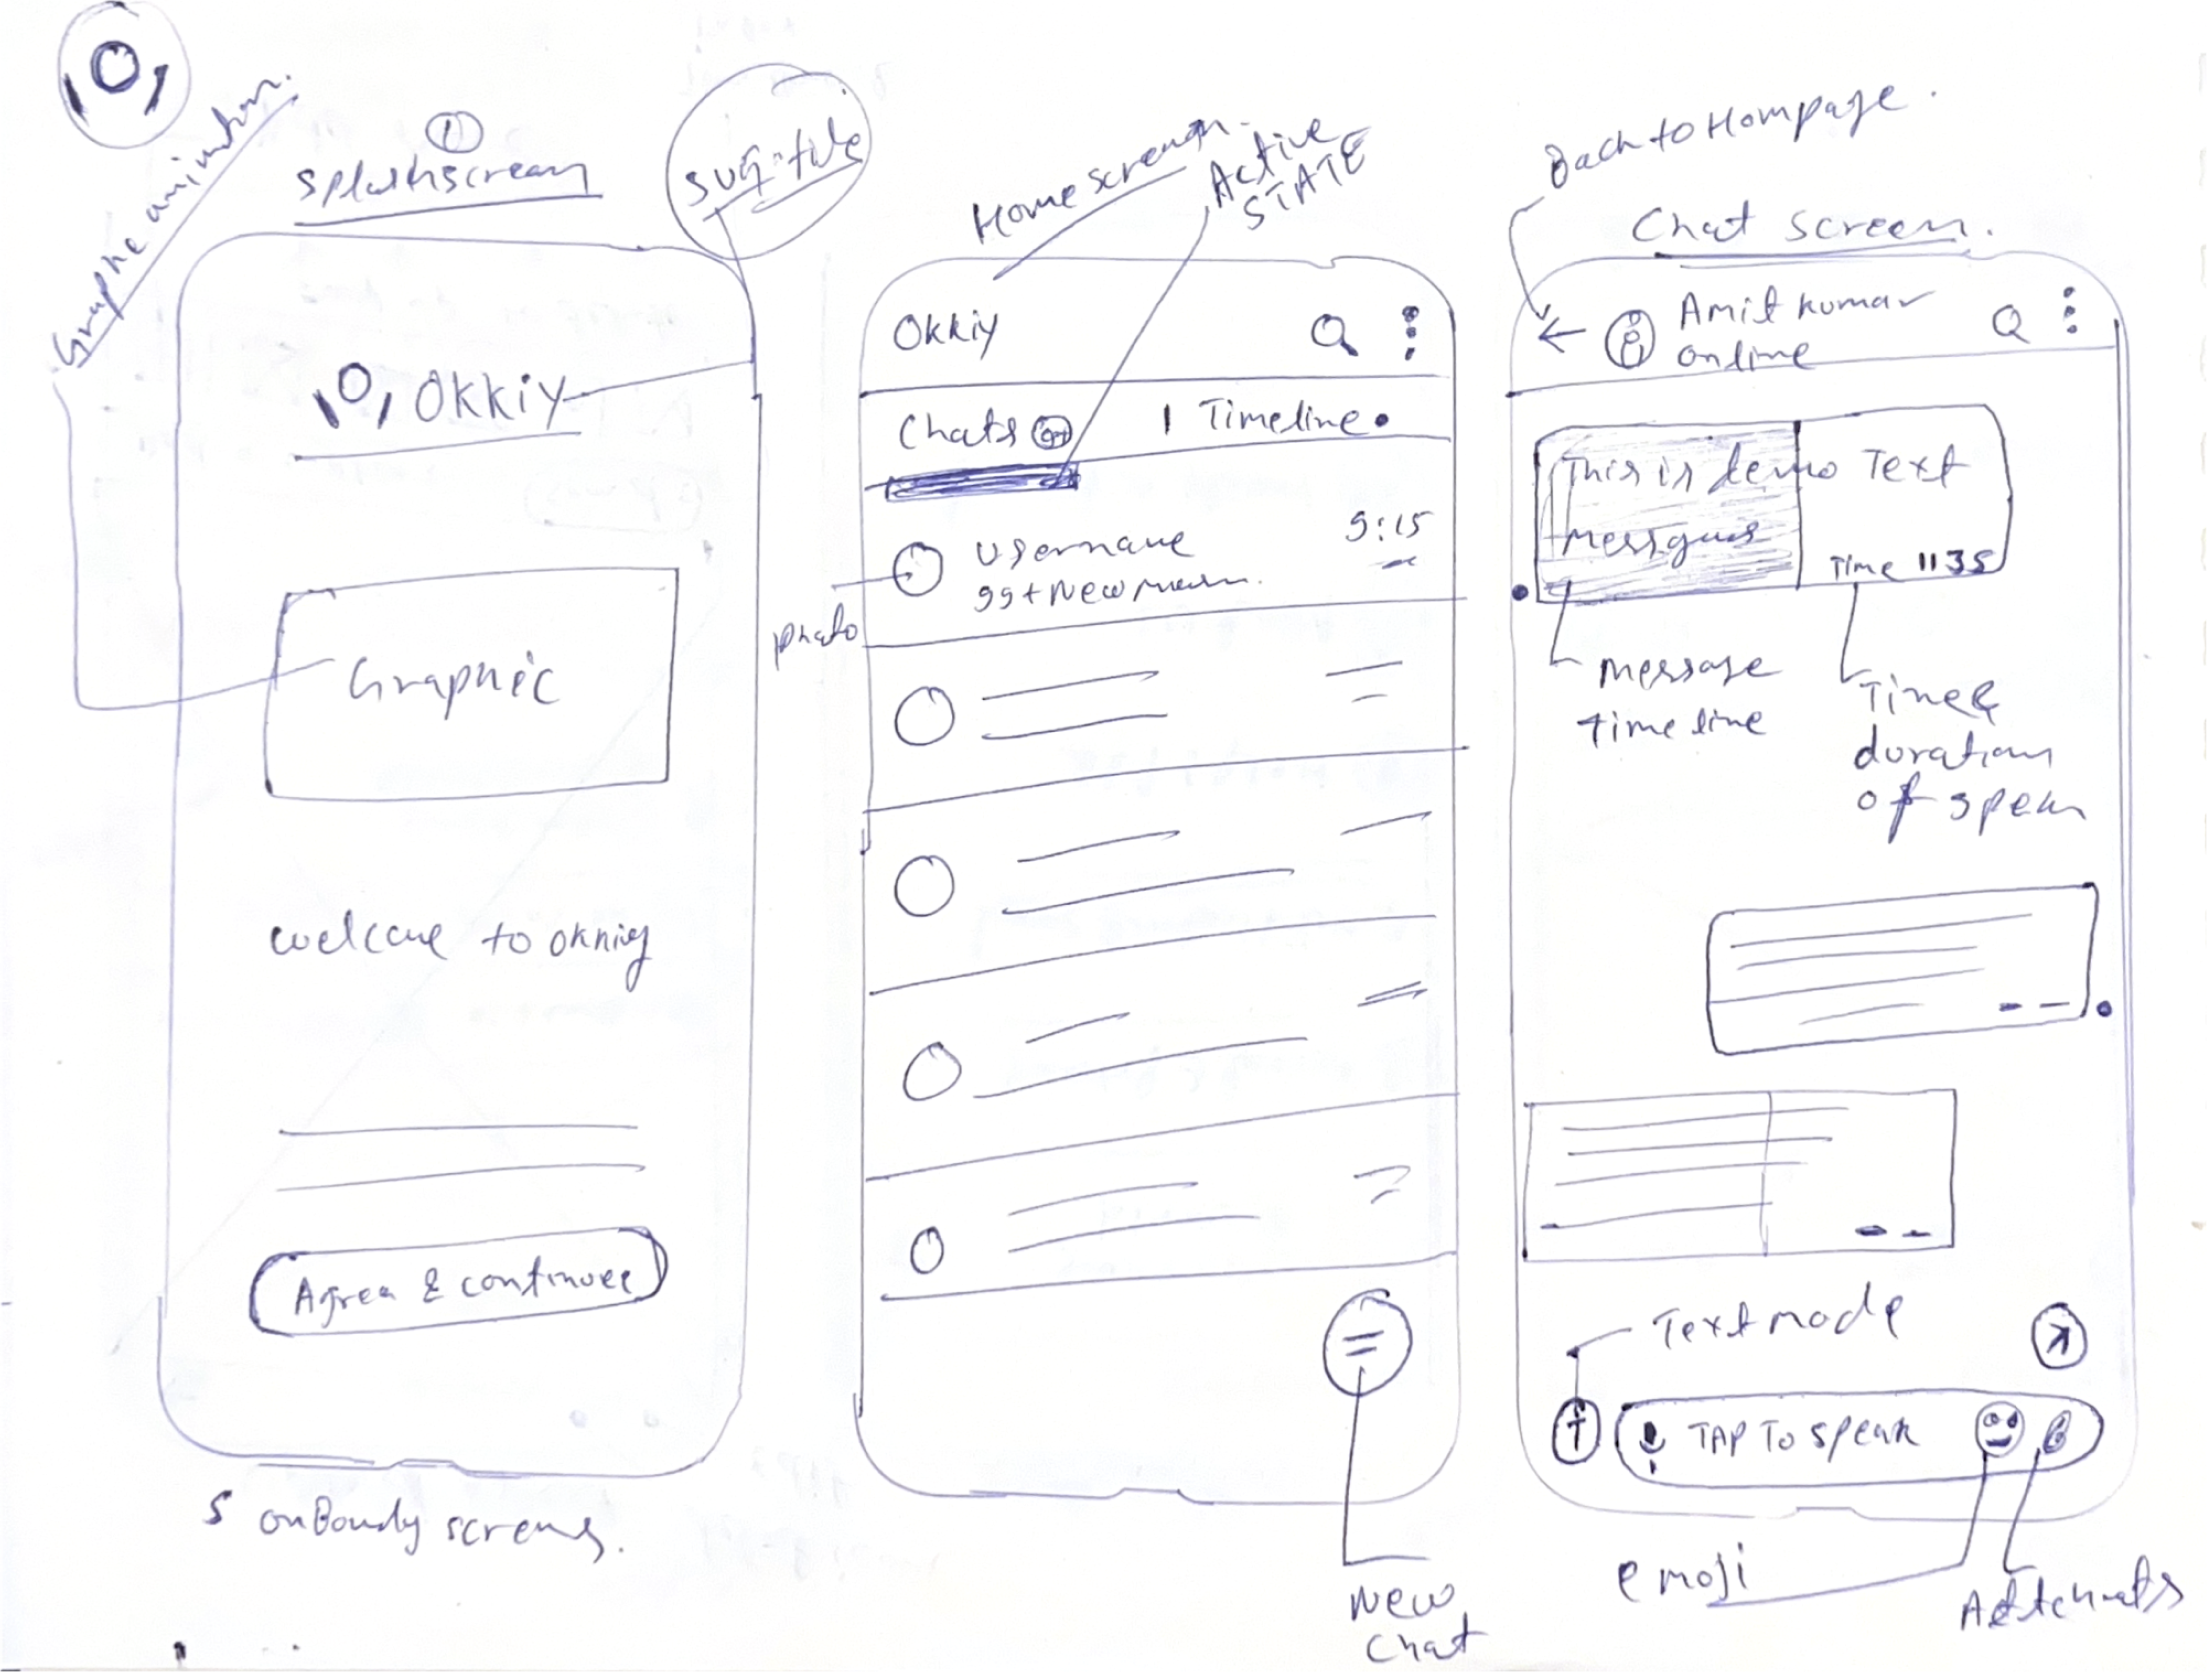 Graphic
①
splashscream
SVG file
OKKiy
Graphic
welcome to okkiy
Agree & continuee
5 onBoardy screens.
Home screen
Active
STATE
Okkiy
Chats 99+
Timeline
Username
9:15
99+ New
photo
New
Chat
Back to Hompage.
Chat screen.
Amit kumar
online
This is demo Text
Time 1135
message
time line
Time &
duration
of speak
Text mode
T
TAP TO speak
emoji